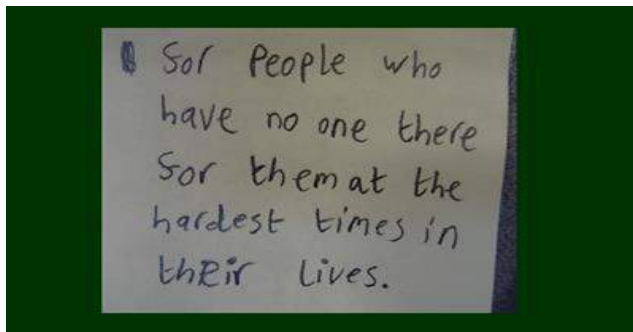 for People who
have no one there
for them at the
hardest times in
their lives.